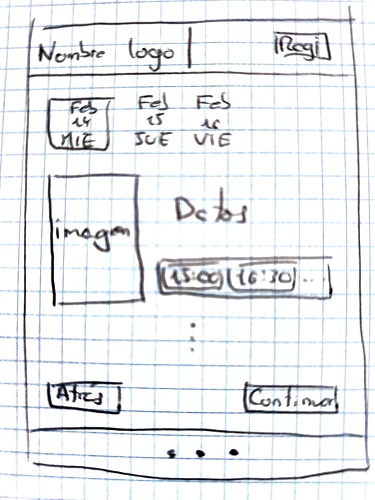 Nombre logo Regi
Feb Feb Feb
14 15 16
MIE JUE VIE
imagen Datos
15:00 16:30 ...
Atrás Continuar